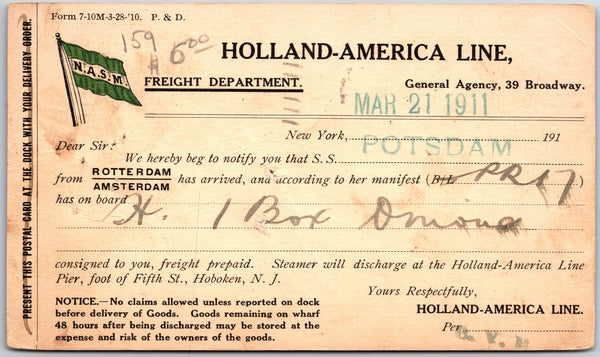 Form 7-10M-3-28-'10. P. & D.
PRESENT THIS POSTAL CARD AT THE DOCK WITH YOUR DELIVERY ORDER.
N.A.S.M
159
HOLLAND-AMERICA LINE,
FREIGHT DEPARTMENT.
General Agency, 39 Broadway.
MAR 21 1911
New York, 191
Dear Sir:
POTSDAM
We hereby beg to notify you that S.S.
from ROTTERDAM
AMSTERDAM
has arrived, and according to her manifest (B/L PR 17)
has on board H. 1 Box
consigned to you, freight prepaid. Steamer will discharge at the Holland-America Line
Pier, foot of Fifth St., Hoboken, N. J.
Yours Respectfully,
HOLLAND-AMERICA LINE.
Per
NOTICE.—No claims allowed unless reported on dock
before delivery of Goods. Goods remaining on wharf
48 hours after being discharged may be stored at the
expense and risk of the owners of the goods.